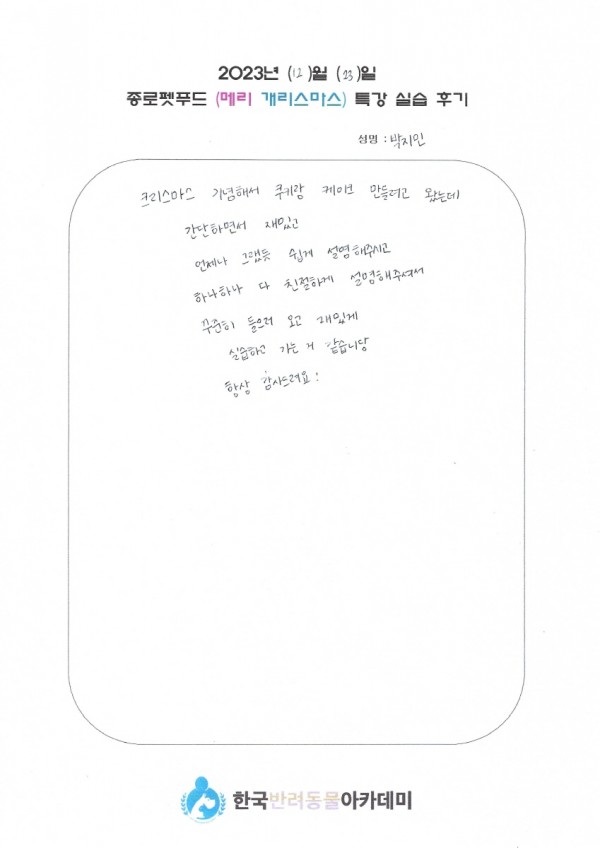 2023년 (12)월 (23)일
종로펫푸드 (메리 개리스마스) 특강 실습 후기
성명 : 박지인
크리스마스 기념해서 쿠키랑 케이크 만들려고 왔는데
간단하면서 재밌고
언제나 그랬듯 쉽게 설명해주시고
하나하나 다 친절하게 설명해주셔서
꾸준히 들으러 오고 재밌게
실습하고 가는 거 같습니당
항상 감사드려요 :
한국반려동물아카데미